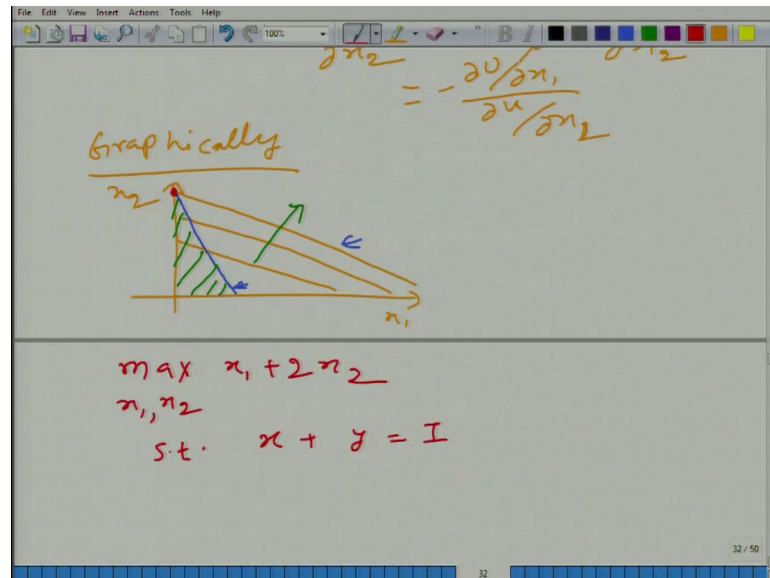 File Edit View Insert Actions Tools Help
100%
B I
∂x₂ ∂x₂
= - ∂U/∂x₁
∂u/∂x₂
Graphically
x₂
x₁
max x₁ + 2x₂
x₁, x₂
s.t. x + y = I
32 / 50
32